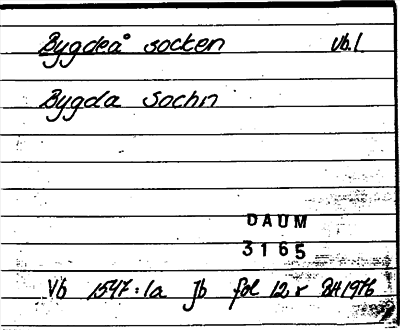 Bygdeå socken Vb.l.
Bygda Sochn
DAUM
3165
Vb 1547:1a Jb fol 12r BH 1976